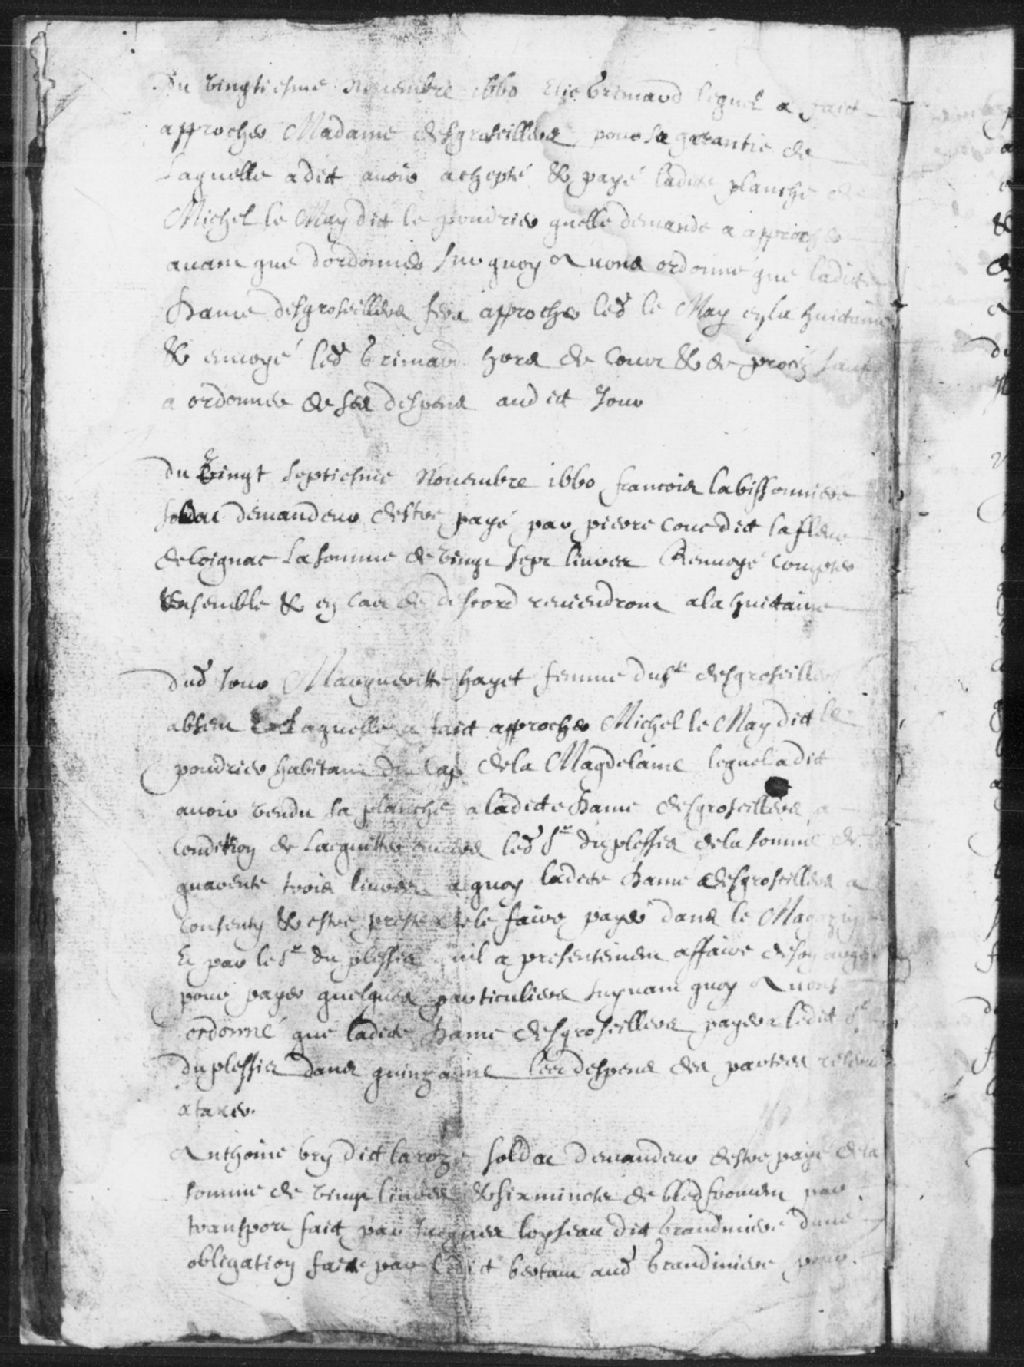 Du vingtiesme Novembre 1660 Elie Grimard lequel a faict
approcher Madame desgroseillers pour sa garantie de
Laquelle a dict avoir achepté & payé ladite planche de
Michel le May dict le poudrier quelle demande a approcher
avant que dordonner sur quoy a nous ordonné que ladite
Dame desgroseillers fera approcher led le May en la huictaine
& envoyé led Grimard hors de Cour & de procez sauf
a ordonner de ses despens audict Jour
Du vingt septiesme Novembre 1660 francois labissonniere
soldat demandeur destre payé par pierre Couc dict lafleur
de Coignac La somme de vingt sept livres Renvoyé compter
Ensemble & en cas de discord reviendront a la huictaine
Dud Jour Margueritte hayet femme du Sr desgroseillers
absent Laquelle a faict approcher Michel le May dict le
poudrier habitant du Cap de la Magdelaine lequel a dict
avoir vendu sa planche a ladicte Dame desgroseillers a
condition de Lacquitter envers led Sr duplessis de la somme de
quarente trois livres a quoy ladicte Dame desgroseillers a
consenty & estre preste de le faire payer dans le Magazin
Et par le Sr du plessis quil a presentement affaire de son argent
pour payer quelques particuliers suyvant quoy a nous
ordonné que ladite Dame desgroseillers payera ledict Sr
duplessis dans quinzaine les despens des parties
a taxer
Anthoine bry dict la roze soldat demandeur destre payé de la
somme de vingt livres & six minots de bled froment par
transport faict par Jacques loyseau dit Grandiniere dune
obligation faite par ledict bertaut aud Grandiniere pour